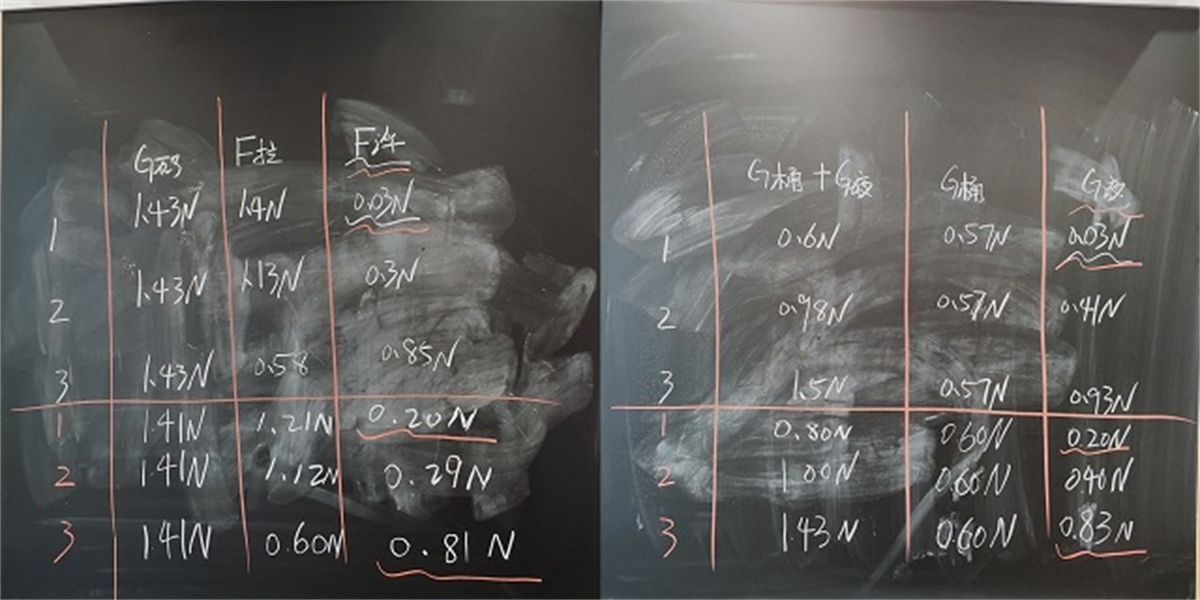 G码 F拉 F浮
1 1.43N 1.4N 0.03N
2 1.43N 1.13N 0.3N
3 1.43N 0.58 0.85N
1 1.41N 1.21N 0.20N
2 1.41N 1.12N 0.29N
3 1.41N 0.60N 0.81N
G桶+G液 G桶 G液
1 0.6N 0.57N 0.03N
2 0.98N 0.57N 0.41N
3 1.5N 0.57N 0.93N
1 0.80N 0.60N 0.20N
2 1.00N 0.60N 0.40N
3 1.43N 0.60N 0.83N